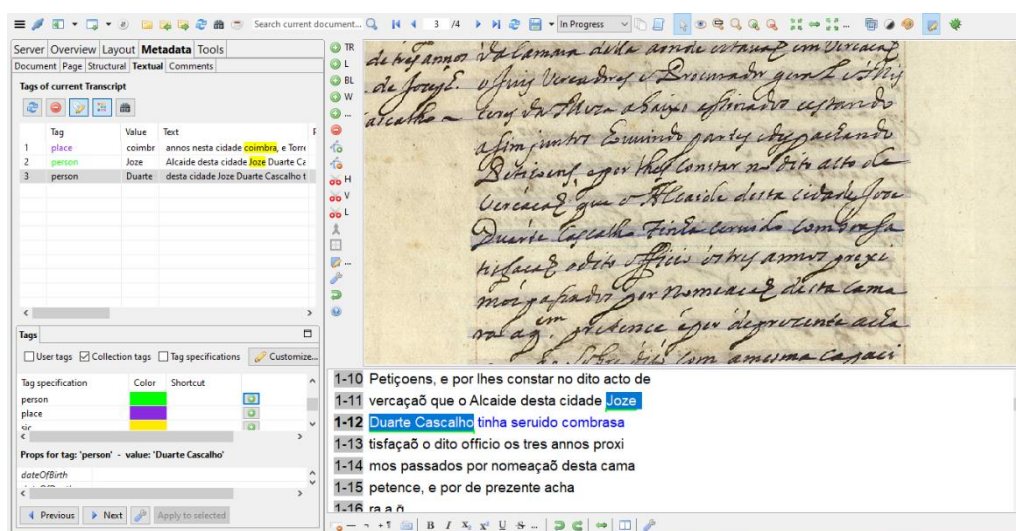 Search current document...
3 /4
In Progress
Server Overview Layout Metadata Tools
Document Page Structural Textual Comments
Tags of current Transcript
Tag Value Text
1 place coimbr annos nesta cidade coimbra, e Torre
2 person Joze Alcaide desta cidade Joze Duarte Ca
3 person Duarte desta cidade Joze Duarte Cascalho t
Tags
User tags Collection tags Tag specifications Customize...
Tag specification Color Shortcut
person
place
sic
Props for tag: 'person' - value: 'Duarte Cascalho'
dateOfBirth
Previous Next Apply to selected
TR
L
BL
W
...
H
V
L
...
de tres annos da Camara desta aonde estavaõ em Vereacaõ
o Juis Vereadores o Procurador geral
da Meza abaixo asinados estando
asim juntos ouvindo partes despachando
Petiçoens, e por lhes constar no dito acto de
vercaçaõ que o Alcaide desta cidade Joze
Duarte Cascalho tinha seruido combrasa
tisfaçaõ o dito officio os tres annos proxi
mos passados por nomeaçaõ desta cama
ra ag. em pretence, e por de prezente acha
com a mesma capaci
1-10 Petiçoens, e por lhes constar no dito acto de
1-11 vercaçaõ que o Alcaide desta cidade Joze
1-12 Duarte Cascalho tinha seruido combrasa
1-13 tisfaçaõ o dito officio os tres annos proxi
1-14 mos passados por nomeaçaõ desta cama
1-15 petence, e por de prezente acha
1-16 ra a q̃
B I X₂ X² U S ...